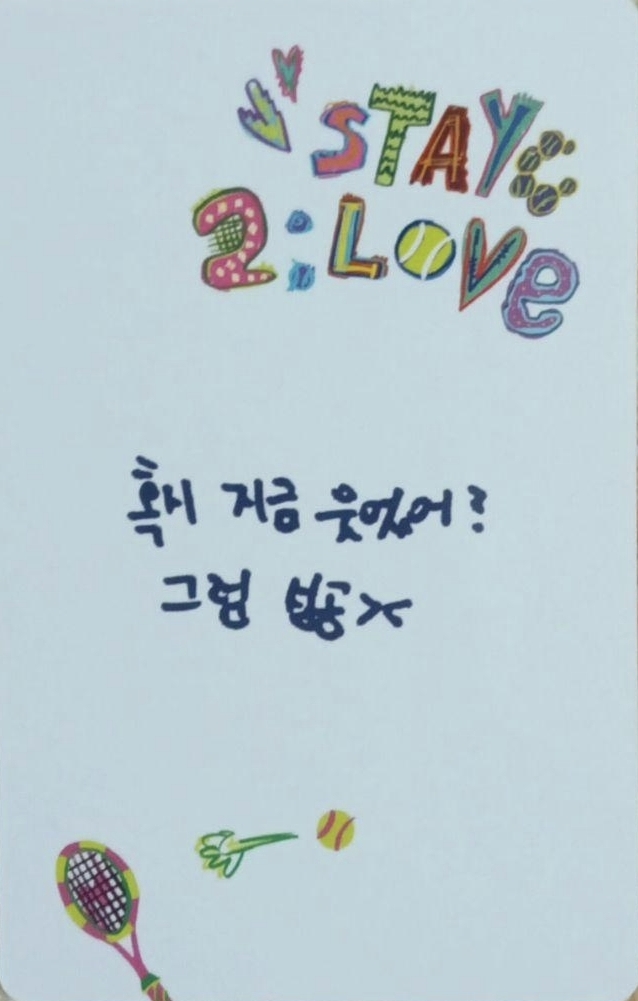 STAYC
2:LOVE
혹시 지금 웃었어?
그럼